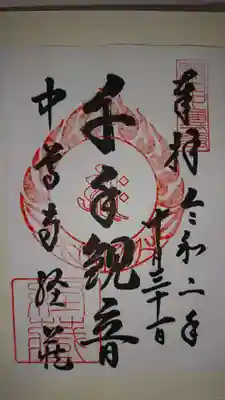 奉拝
令和二年
十月三十一日
千手観音
中尊寺経蔵